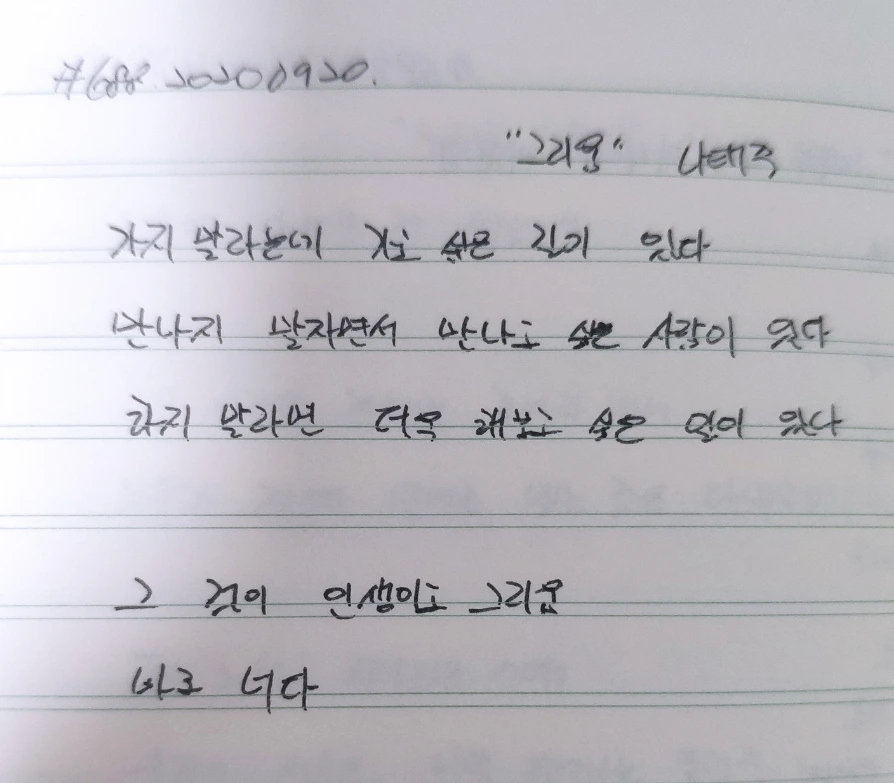 #688. 20200920.
"그리움" 나태주
가지 말라는데 가고 싶은 길이 있다
만나지 말자면서 만나고 싶은 사람이 있다
하지 말라면 더욱 해보고 싶은 일이 있다
그 것이 인생이고 그리움
바로 너다